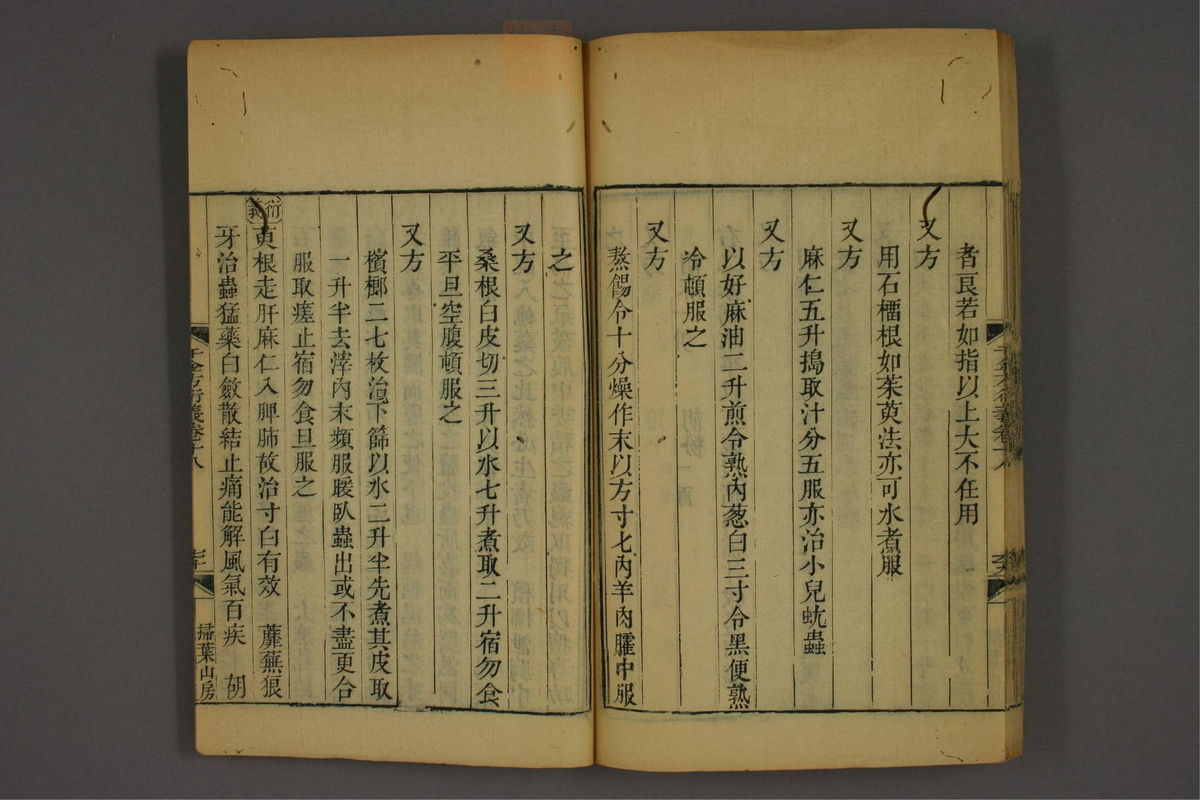 者良若如指以上大不任用
又方
用石橊根如茱萸法亦可水煮服
又方
麻仁五升搗取汁分五服亦治小兒蚘蟲
又方
以好麻油二升煎令熟內葱白三寸令黑便熟
冷頓服之
又方
熬餳令十分燥作末以方寸匕內羊肉臛中服
之
又方
桑根白皮切三升以水七升煮取二升宿勿食
平旦空腹頓服之
又方
檳榔二七枚治下篩以水二升半先煮其皮取
一升半去滓內末頻服暖臥蟲出或不盡更合
服取瘥止宿勿食旦服之
衍義
萸根走肝麻仁入脾肺故治寸白有效 蘼蕪狼
牙治蟲猛藥白斂散結止痛能解風氣百疾 胡
千金方衍義卷十八
掃葉山房